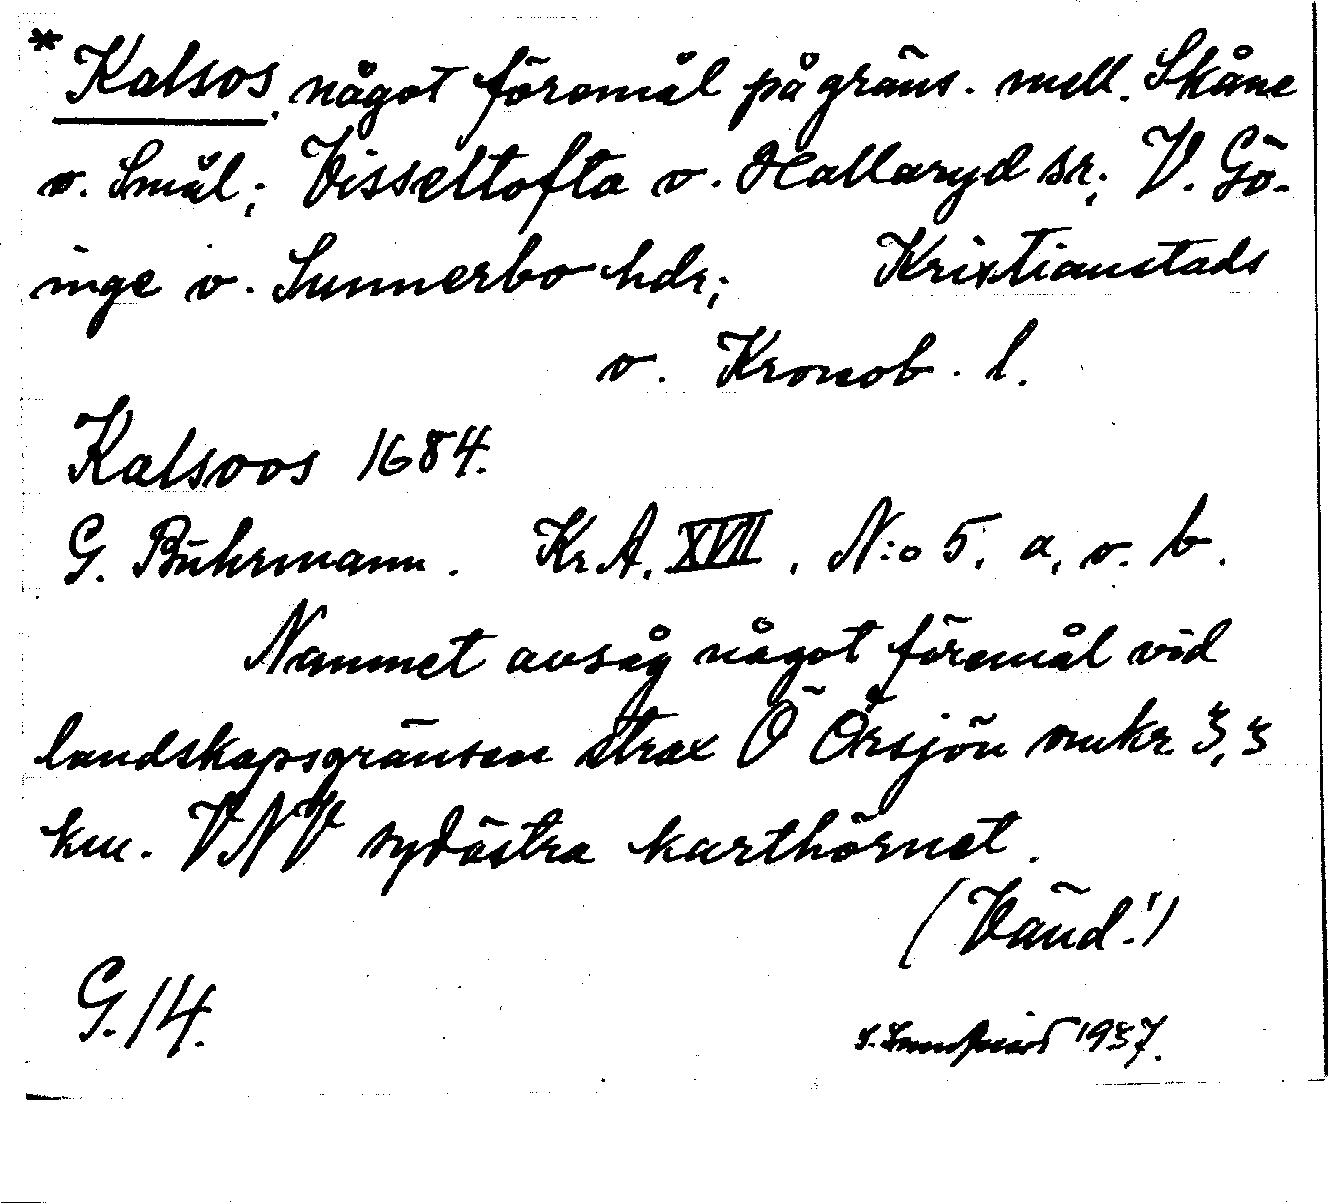 * Kalsos, något föremål på gräns. mell. Skåne
o. Smål; Visseltofta o. Hallaryd sr; V. Gö-
inge o. Sunnerbo hdr; Kristianstads
o. Kronob. l.
Kalsoos 1684.
G. Buhrmann. Kr A, XVII, N:o 5, a, o. b.
Namnet avsåg något föremål vid
landskapsgränsen strax Ö Örsjön omkr 3,3
km. VNV sydöstra karthörnet.
(Vänd!)
G.14.
1937.